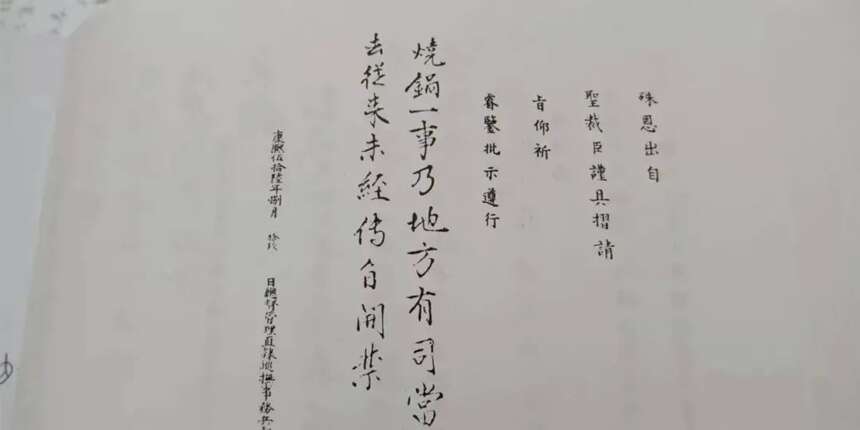 殊恩出自
聖裁臣謹具摺請
旨仰祈
睿鑒批示遵行
燒鍋一事乃地方有司當
去從來未經传旨開禁
康熙伍拾陸年捌月
拾玖
日總督管理直隸巡撫事務兵